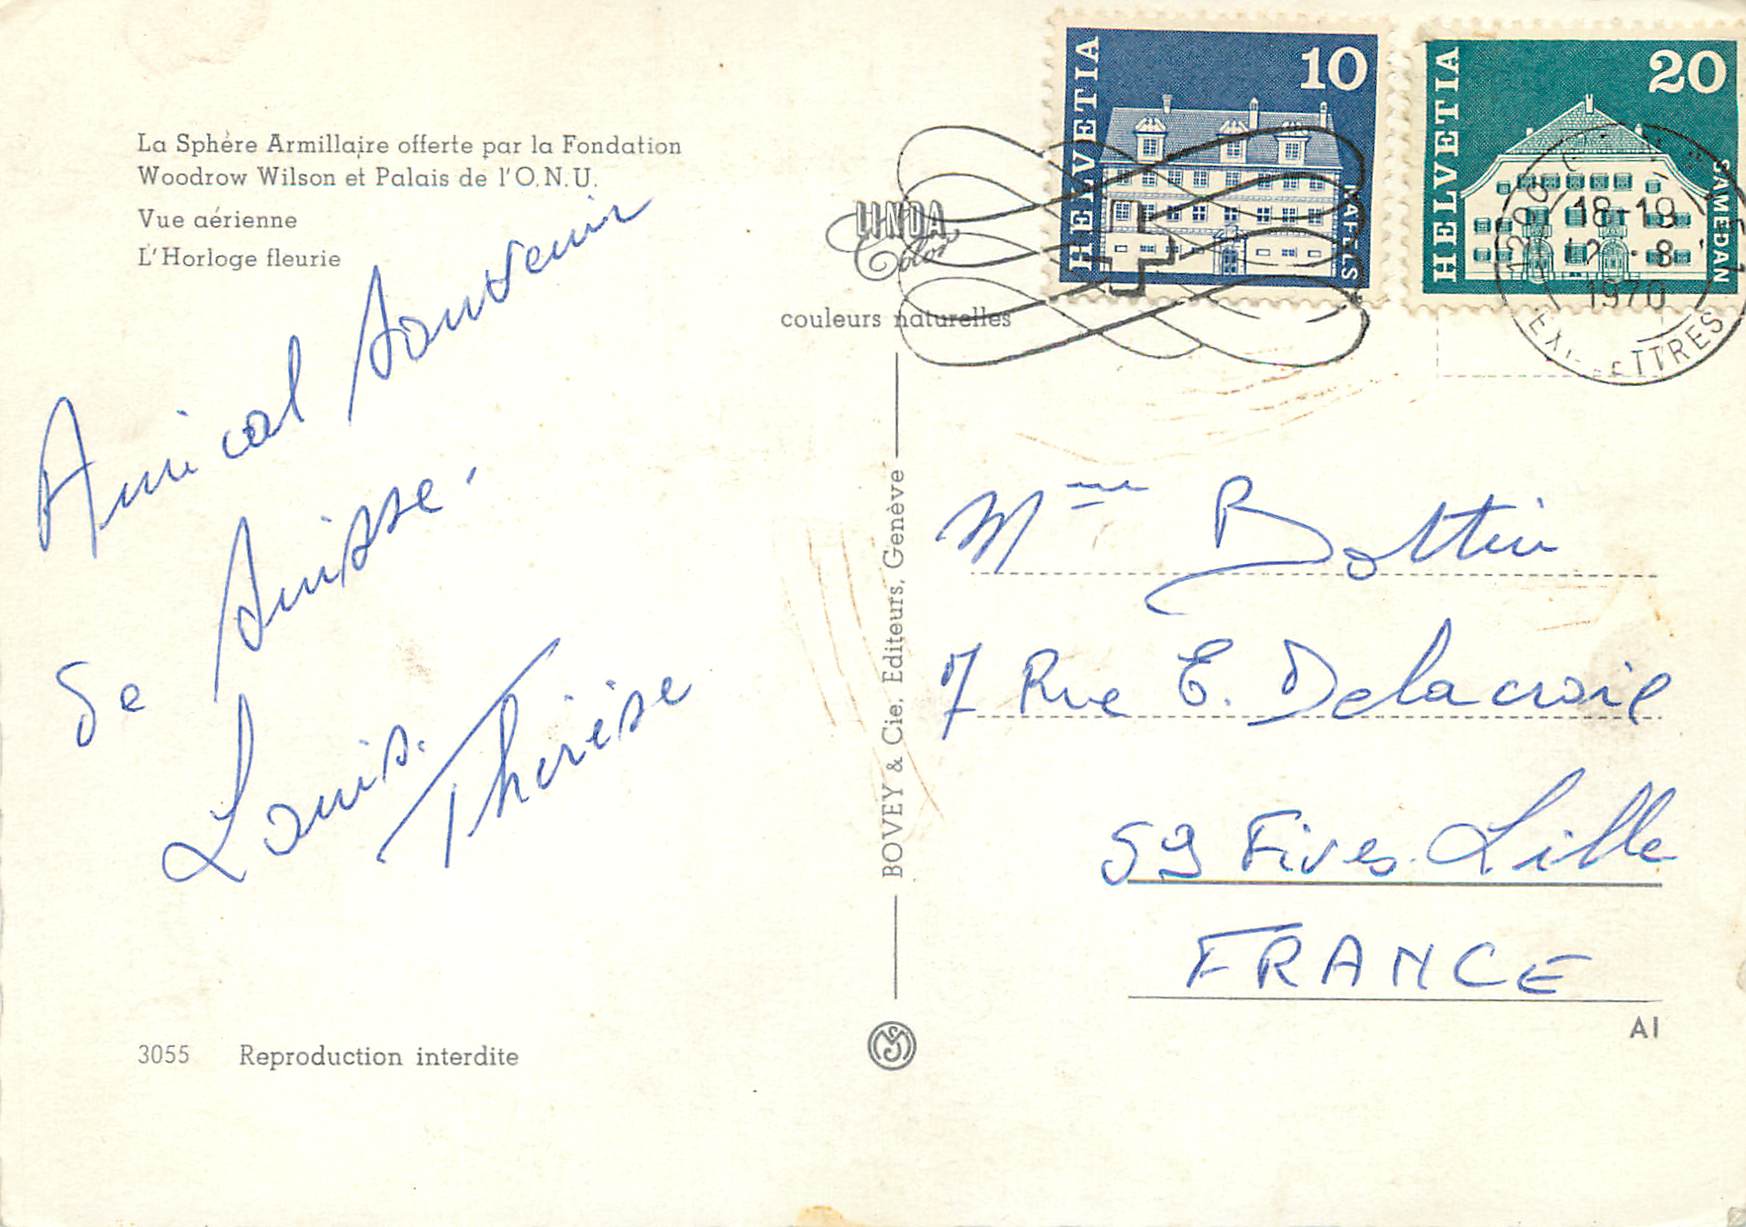 La Sphère Armillaire offerte par la Fondation
Woodrow Wilson et Palais de l'O.N.U.
Vue aérienne
L'Horloge fleurie
Amical souvenir
de Suisse.
Louis.
Thérèse
3055 Reproduction interdite
LINDA
Color
couleurs naturelles
BOVEY & Cie, Editeurs, Genève
HELVETIA
10
NÄFELS
HELVETIA
20
SAMEDAN
18-19
8
1970
LETTRES
Mme Bottin
7 Rue E. Delacroix
59 Fives. Lille
FRANCE
A1